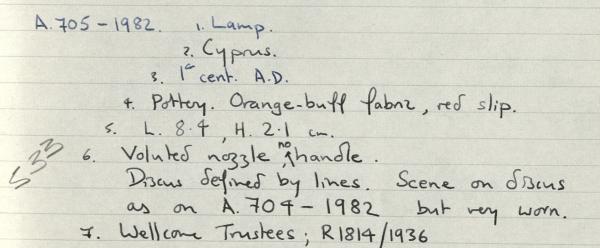 A.705-1982. 1. Lamp.
2. Cyprus.
3. 1st cent. A.D.
4. Pottery. Orange-buff fabric, red slip.
5. L. 8.4, H. 2.1 cm.
6. Voluted nozzle, no handle.
Discus defined by lines. Scene on discus
as on A.704-1982 but very worn.
7. Wellcome Trustees; R1814/1936
533